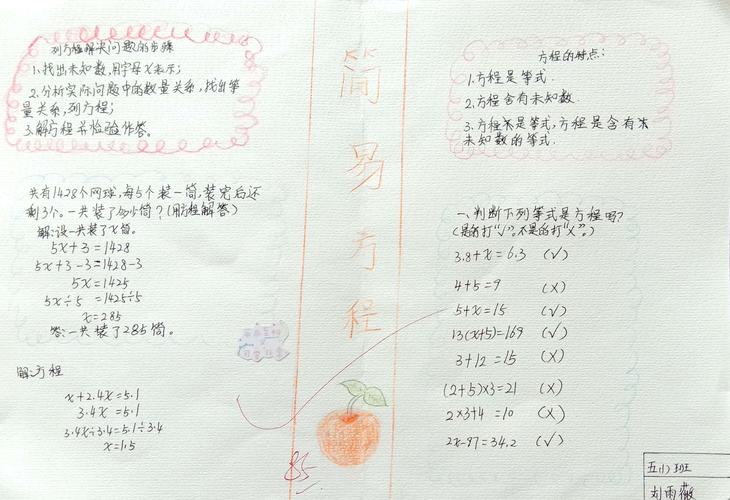 列方程解决问题的步骤
1.找出未知数,用字母x表示;
2.分析实际问题中的数量关系,找出等
量关系,列方程;
3.解方程并检验作答。
共有1428个网球,每5个装一筒,装完后还
剩3个。一共装了多少筒?(用方程解答)
解:设一共装了x筒。
5x+3=1428
5x+3-3=1428-3
5x=1425
5x÷5=1425÷5
x=285
答:一共装了285筒。
解方程
x+2.4x=5.1
3.4x=5.1
3.4x÷3.4=5.1÷3.4
x=1.5
简易方程
85
方程的特点:
1.方程是等式.
2.方程含有未知数.
3.方程是等式,方程是含有未
未知数的等式.
一、判断下列等式是方程吗?
(是的打“√”。不是的打“X”。)
3.8+x=6.3 (√)
4+5=9 (X)
5+x=15 (√)
13(x+5)=169 (√)
3+12=15 (X)
(2+5)×3=21 (X)
2×3+4=10 (X)
2x-97=34.2 (√)
五(1)班
刘雨薇